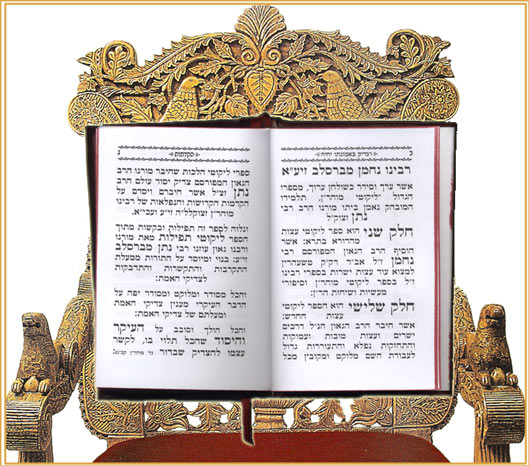 ב וצדיק באמונתו יחיה
רבינו נחמן מברסלב זיע״א
אשר ערך וסידר כשולחן ערוך, מספרי
הגדול ליקוטי מוהר״ן, תלמידו
המובהק נאמן ביתו מורנו הרב רבי
נתן זצוק״ל
חלק שני הוא ספר ליקוטי עצות
מהדורא בתרא: אשר
הוסיף הרב הגאון המפורסם רבי
נחמן ז״ל אב״ד דק״ק טשעהרין
למצוא עוד עצות ישרות בספרי רבינו
ז״ל בספר ליקוטי מוהר״ן וסיפורי
מעשיות ושיחות הר״ן:
חלק שלישי הוא הספר ליקוטי
עצות החדש:
אשר חיבר הרב הגאון הנ״ל דרכים
ועצות טובות ועמוקות
והתחזקות נפלא והתעוררות גדול
לעבודת השם מלוקט ומקובץ מכל
הקדמות ג
ספרי ליקוטי הלכות שחיבר מורנו הרב
הגאון המפורסם צדיק יסוד עולם הרב
נתן זצ״ל אשר חיברם ויסדם על
הקדמות הקדושות והנפלאות של רבינו
מוהר״ן זצוקללה״ה זיע״א ועכי״א.
ונלוה לספר זה תפילות ובקשות מתוך
הספר ליקוטי תפילות מאת מורנו
ורבנו גאון עוזנו רבי נתן מברסלב
זי״ע: בנוי ומיוסד על התורות ממעלת
התקרבות והתקשרות והתדבקות
לצדיקי האמת:
והכל מסודר ומלוקט ומסודר יפה על
הדבר העיקרי מענין צדיקי האמת
ומעלתם של צדיקי האמת:
והכל הולך וסובב על העיקר
והיסוד שהכל תלוי בו, לקשר
עצמו להצדיק שבדור